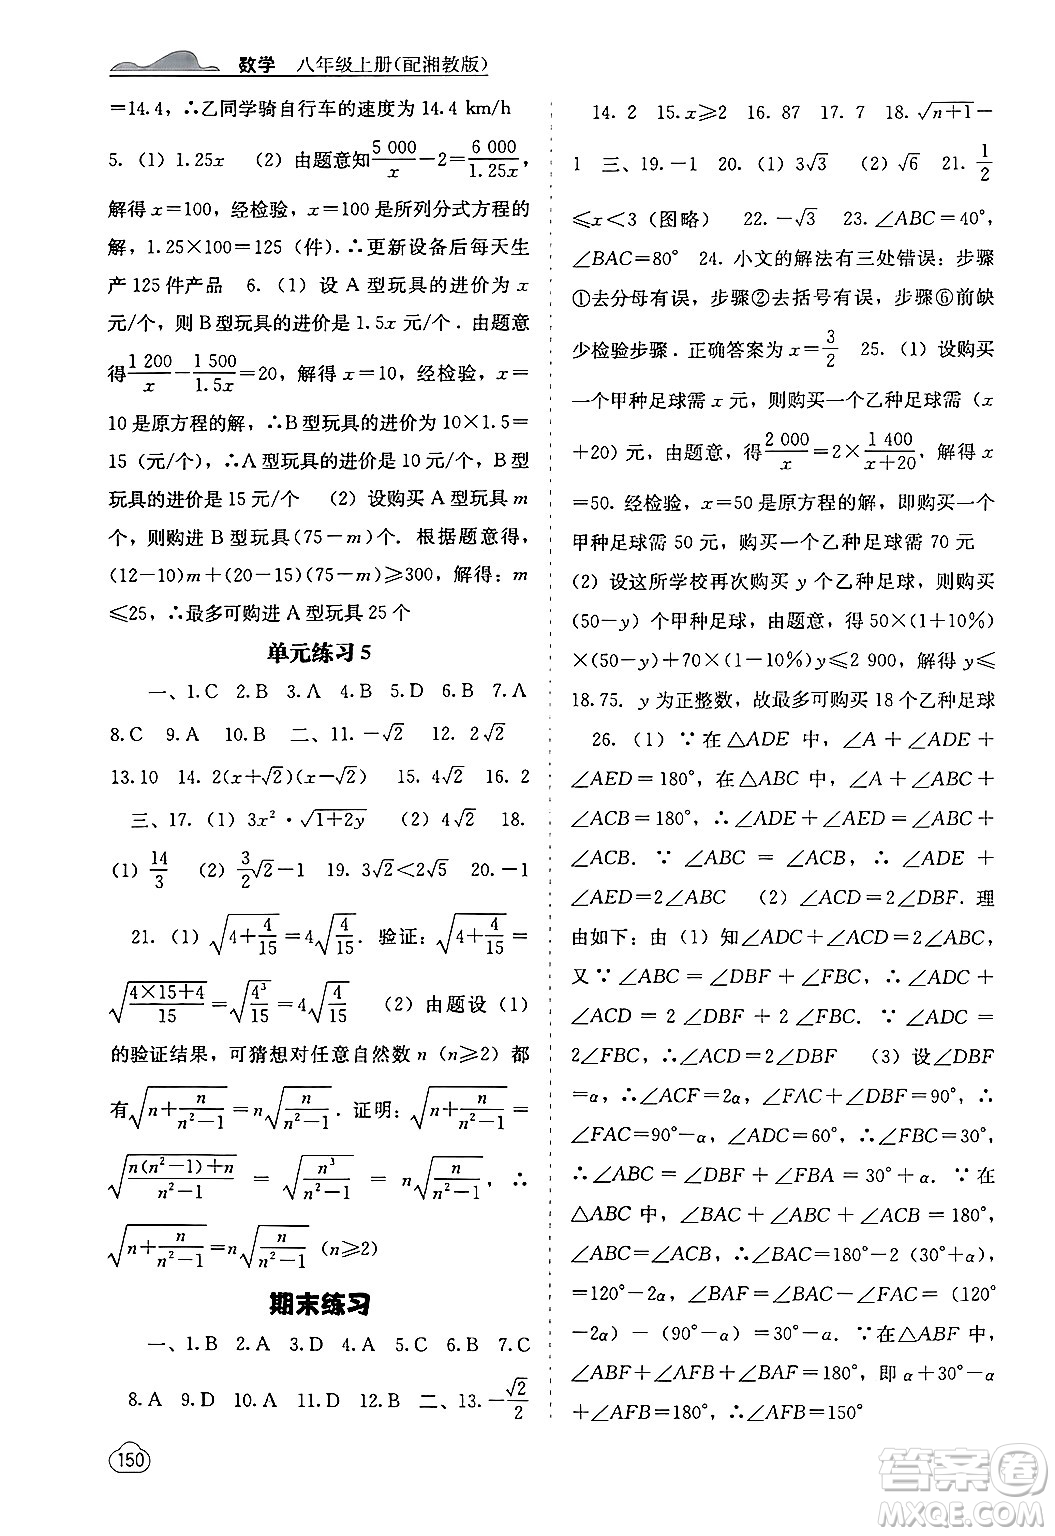 数学 八年级上册(配湘教版)
=14.4, ∴乙同学骑自行车的速度为 14.4 km/h
5. (1) 1.25x (2) 由题意知 5 000/x −2= 6 000/1.25x,
解得 x=100, 经检验, x=100 是所列分式方程的
解, 1.25×100=125 (件). ∴更新设备后每天生
产 125 件产品 6. (1) 设 A 型玩具的进价为 x
元/个, 则 B 型玩具的进价是 1.5x 元/个. 由题意
得 1 200/x − 1 500/1.5x =20, 解得 x=10, 经检验, x=
10 是原方程的解, ∴B 型玩具的进价为 10×1.5=
15 (元/个), ∴A 型玩具的进价是 10 元/个, B 型
玩具的进价是 15 元/个 (2) 设购买 A 型玩具 m
个, 则购进 B 型玩具(75−m)个. 根据题意得,
(12−10)m+(20−15)(75−m)≥300, 解得: m
≤25, ∴最多可购进 A 型玩具 25 个
单元练习 5
一、1.C 2.B 3.A 4.B 5.D 6.B 7.A
8.C 9.A 10.B 二、11.−√2 12. 2√2
13.10 14. 2(x+√2)(x−√2) 15. 4√2 16. 2
三、17. (1) 3x²·√(1+2y) (2) 4√2 18.
(1) 14/3 (2) 3/2 √2−1 19. 3√2<2√5 20.−1
21. (1) √(4+4/15)=4√(4/15). 验证: √(4+4/15)=
√((4×15+4)/15)=√(4³/15)=4√(4/15) (2) 由题设 (1)
的验证结果, 可猜想对任意自然数 n (n≥2) 都
有√(n+n/(n²−1))=n√(n/(n²−1)). 证明: √(n+n/(n²−1))=
√((n(n²−1)+n)/(n²−1)) = √(n³/(n²−1)) = n√(n/(n²−1)), ∴
√(n+n/(n²−1))=n√(n/(n²−1)) (n≥2)
期末练习
一、1.B 2.A 3.D 4.A 5.C 6.B 7.C
8.A 9.D 10.A 11.D 12.A 二、13.−√2/2
150
14. 2 15.x≥2 16. 87 17. 7 18.√(n+1)−
1 三、19.−1 20. (1) 3√3 (2) √6 21. 1/2
≤x<3 (图略) 22.−√3 23.∠ABC=40°,
∠BAC=80° 24. 小文的解法有三处错误: 步骤
①去分母有误, 步骤②去括号有误, 步骤⑥前缺
少检验步骤. 正确答案为 x=3/2 25. (1) 设购买
一个甲种足球需 x 元, 则购买一个乙种足球需 (x
+20) 元, 由题意, 得 2 000/x =2× 1 400/(x+20), 解得 x
=50. 经检验, x=50 是原方程的解, 即购买一个
甲种足球需 50 元, 购买一个乙种足球需 70 元
(2) 设这所学校再次购买 y 个乙种足球, 则购买
(50−y) 个甲种足球, 由题意, 得 50×(1+10%)
×(50−y)+70×(1−10%)y≤2 900, 解得 y≤
18.75. y 为正整数, 故最多可购买 18 个乙种足球
26. (1) ∵在△ADE 中, ∠A+∠ADE+
∠AED=180°, 在△ABC 中, ∠A+∠ABC+
∠ACB=180°, ∴∠ADE+∠AED=∠ABC+
∠ACB. ∵ ∠ABC = ∠ACB, ∴ ∠ADE +
∠AED=2∠ABC (2) ∠ACD=2∠DBF. 理
由如下: 由 (1) 知∠ADC+∠ACD=2∠ABC,
又∵∠ABC=∠DBF+∠FBC, ∴∠ADC+
∠ACD = 2∠DBF + 2∠FBC. ∵ ∠ADC =
2∠FBC, ∴∠ACD=2∠DBF (3) 设∠DBF
=α, ∴∠ACF=2α, ∠FAC+∠ACF=90°, ∴
∠FAC=90°−α, ∠ADC=60°, ∠FBC=30°,
∴∠ABC=∠DBF+∠FBA=30°+α. ∵在
△ABC 中, ∠BAC + ∠ABC + ∠ACB = 180°,
∠ABC=∠ACB, ∴∠BAC=180°−2 (30°+α)
=120°−2α, ∠BAF=∠BAC−∠FAC= (120°−
2α) − (90°−α) =30°−α. ∵在△ABF 中,
∠ABF+∠AFB+∠BAF=180°, 即 α+30°−α
+∠AFB=180°, ∴∠AFB=150°
答案圈
MXQE.COM